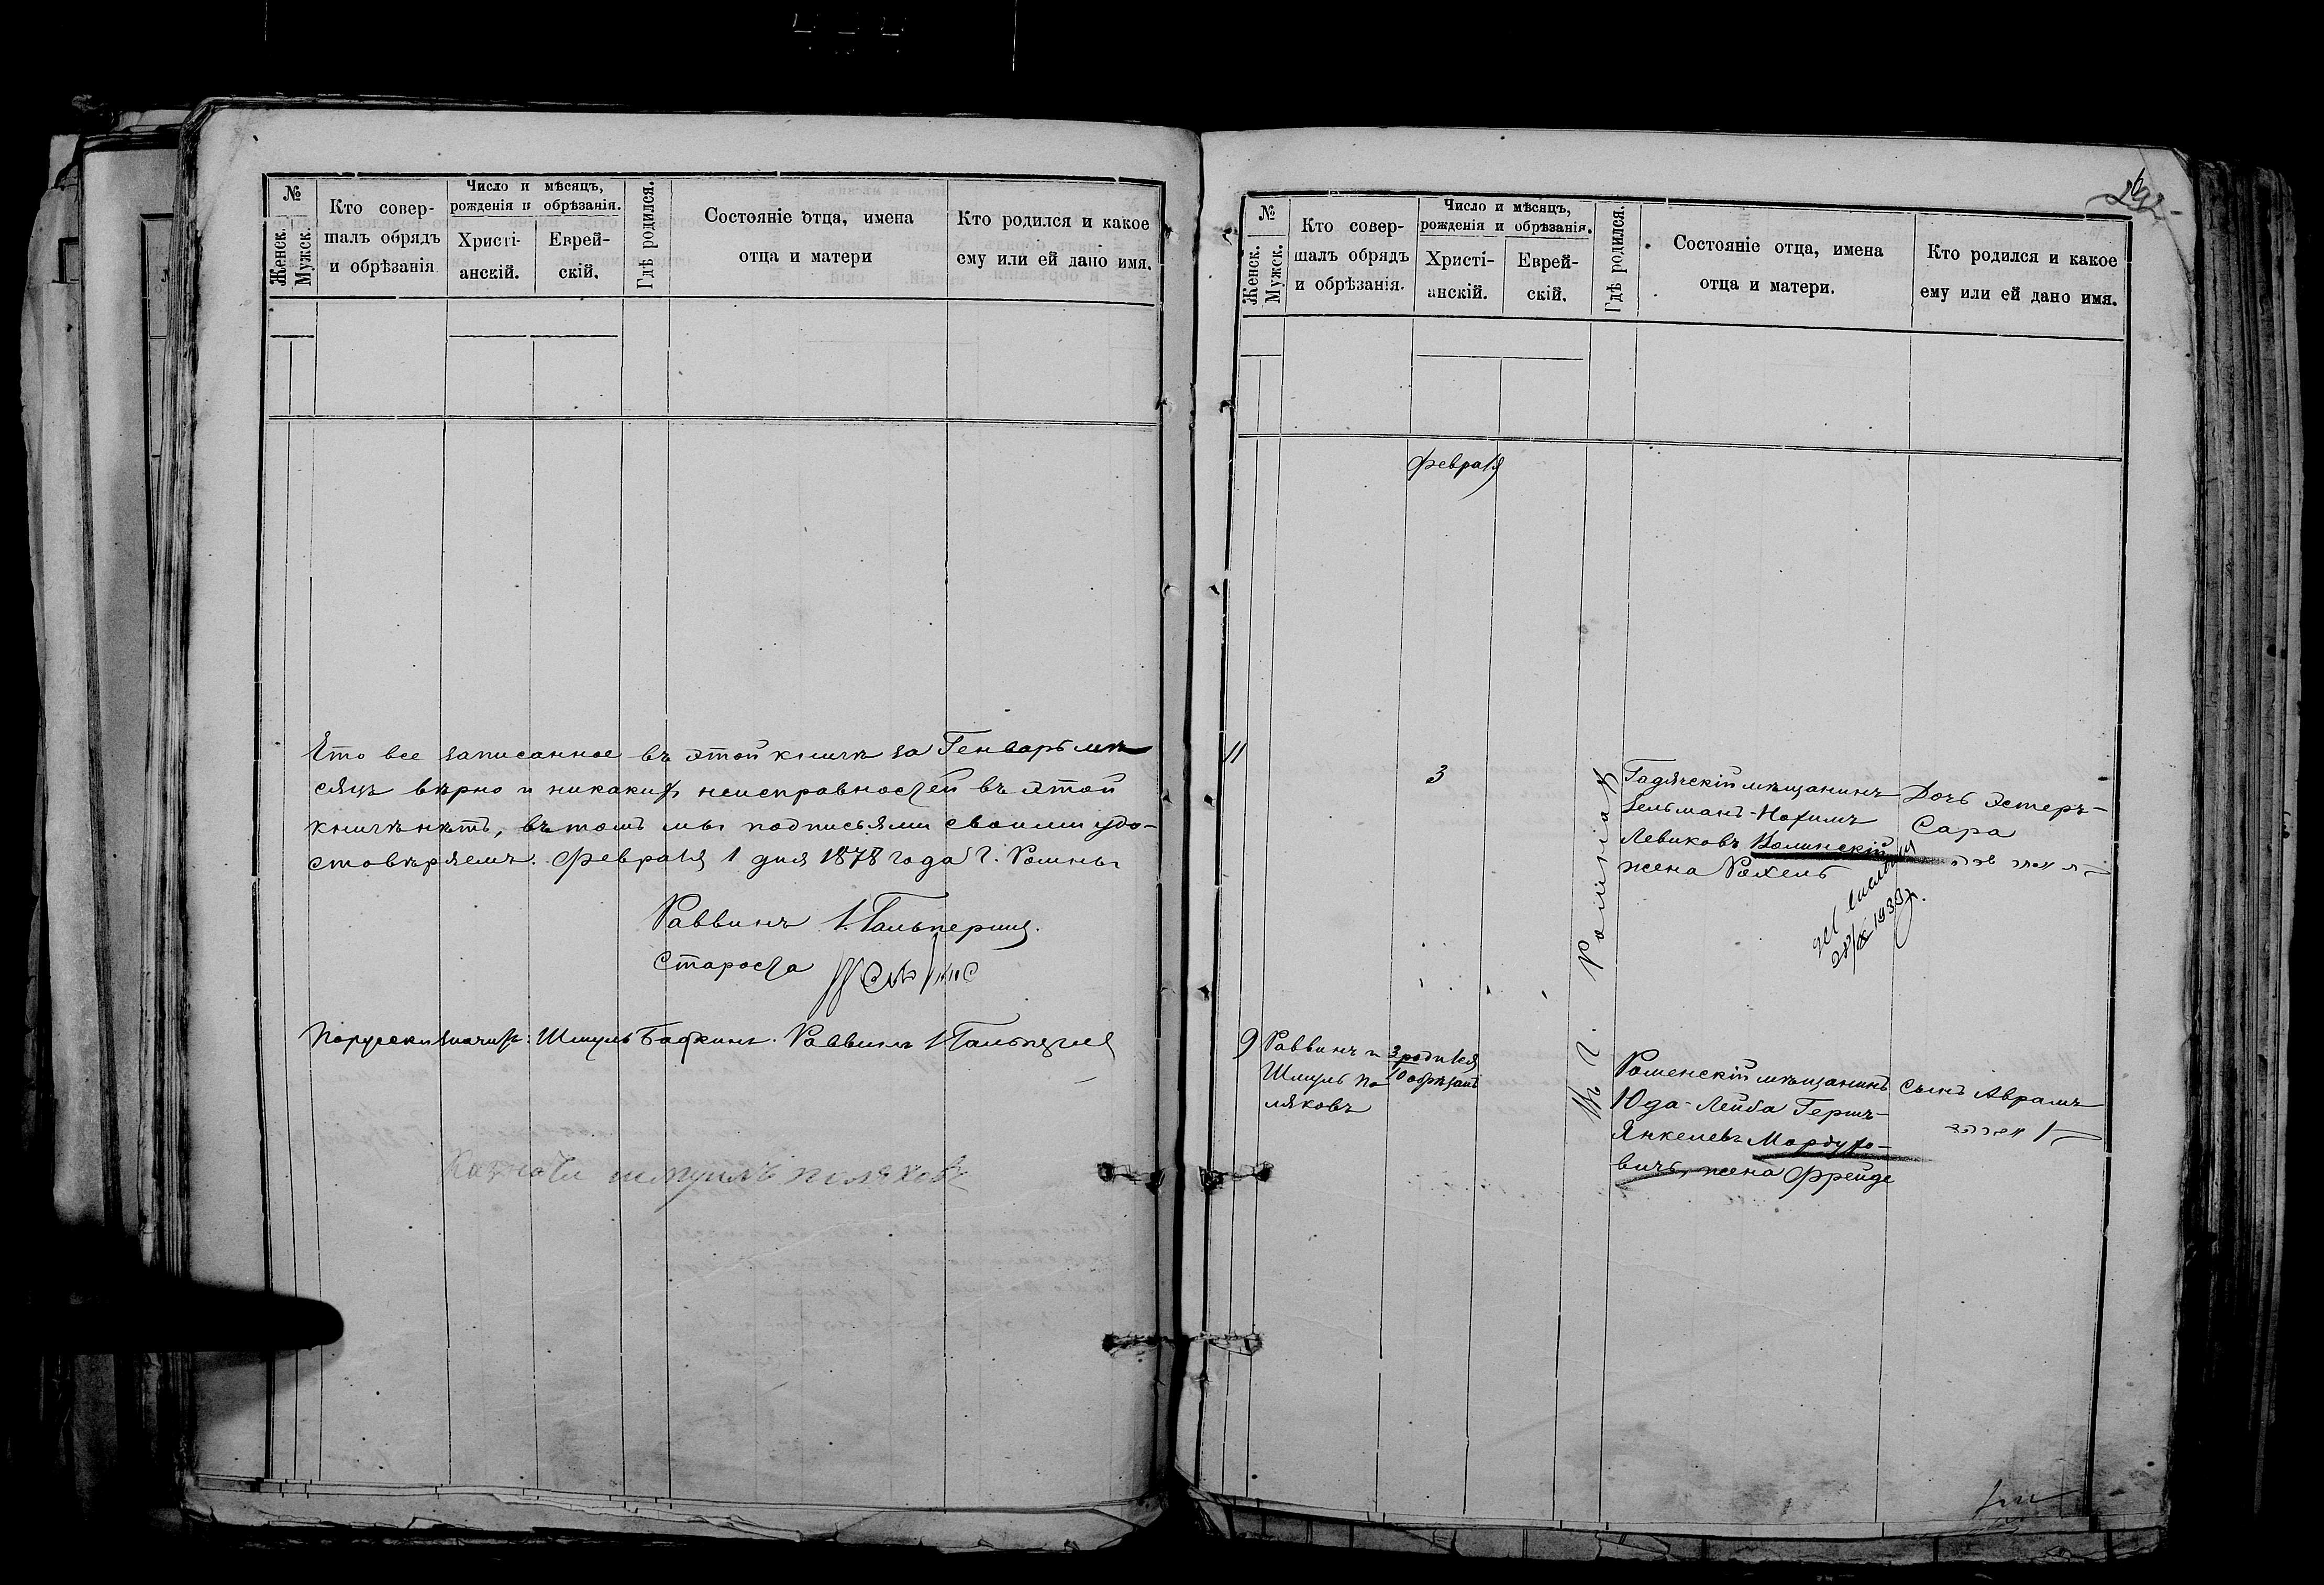 №
Женск.
Мужск.
Кто совер-
шалъ обрядъ
и обрѣзанія
Число и мѣсяцъ,
рожденія и обрѣзанія.
Христі-
анскій.
Еврей-
скій.
Гдѣ родился.
Состояніе отца, имена
отца и матери
Кто родился и какое
ему или ей дано имя.
Что все записанное въ этой книгѣ за Генварь мѣ
сяцъ вѣрно и никакихъ неисправностей въ этой
книгѣ нѣтъ, въ томъ мы подписями своими удо-
стовѣряемъ. Февраля 1 дня 1878 года г. Ромны
Раввинъ Гальперинъ.
Староста
По русски значитъ: Шмуль Раввинъ Гальперинъ
шмуилъ поляковъ
№
Женск.
Мужск.
Кто совер-
шалъ обрядъ
и обрѣзанія.
Число и мѣсяцъ,
рожденія и обрѣзанія.
Христі-
анскій.
Еврей-
скій.
Гдѣ родился.
Состояніе отца, имена
отца и матери.
Кто родился и какое
ему или ей дано имя.
Февраля
11
3
Въ г. Ромнахъ
Гадячскій мѣщанинъ
Зельманъ-Нохимъ
Левиковъ Волинскій
жена Рохель
Дочь Эстеръ-
Сара
9
Раввинъ и
Шмуль По-
ляковъ
3 родился
10 обрѣзанъ
Роменскій мѣщанинъ
Юда-Лейба Гершъ-
Янкелевъ Мордухо-
вичъ, жена Фрейде
Сынъ Аврамъ